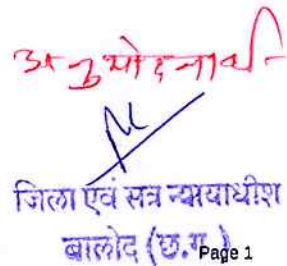 अनुमोदनार्थ
जिला एवं सत्र न्यायाधीश
बालोद (छ.ग.)
Page 1